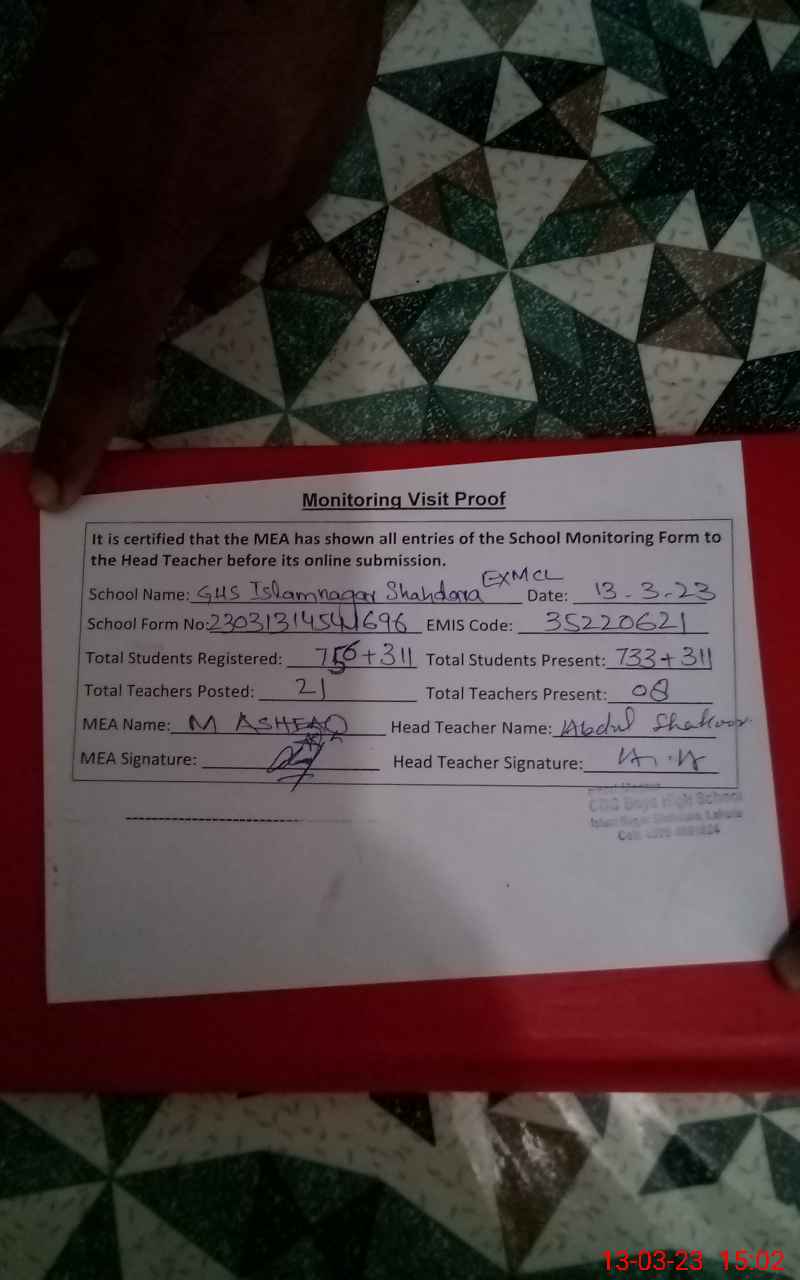 Monitoring Visit Proof
It is certified that the MEA has shown all entries of the School Monitoring Form to
the Head Teacher before its online submission.
School Name: GHS Islamnagar Shahdara EX MCL Date: 13-3-23
School Form No: EMIS Code: 35220621
Total Students Registered: 756+311 Total Students Present: 733+311
Total Teachers Posted: 21 Total Teachers Present: 08
MEA Name: M ASHFAQ Head Teacher Name: Abdul Shakoor
MEA Signature: Head Teacher Signature:
CDG Boys High School
13-03-23 15:02